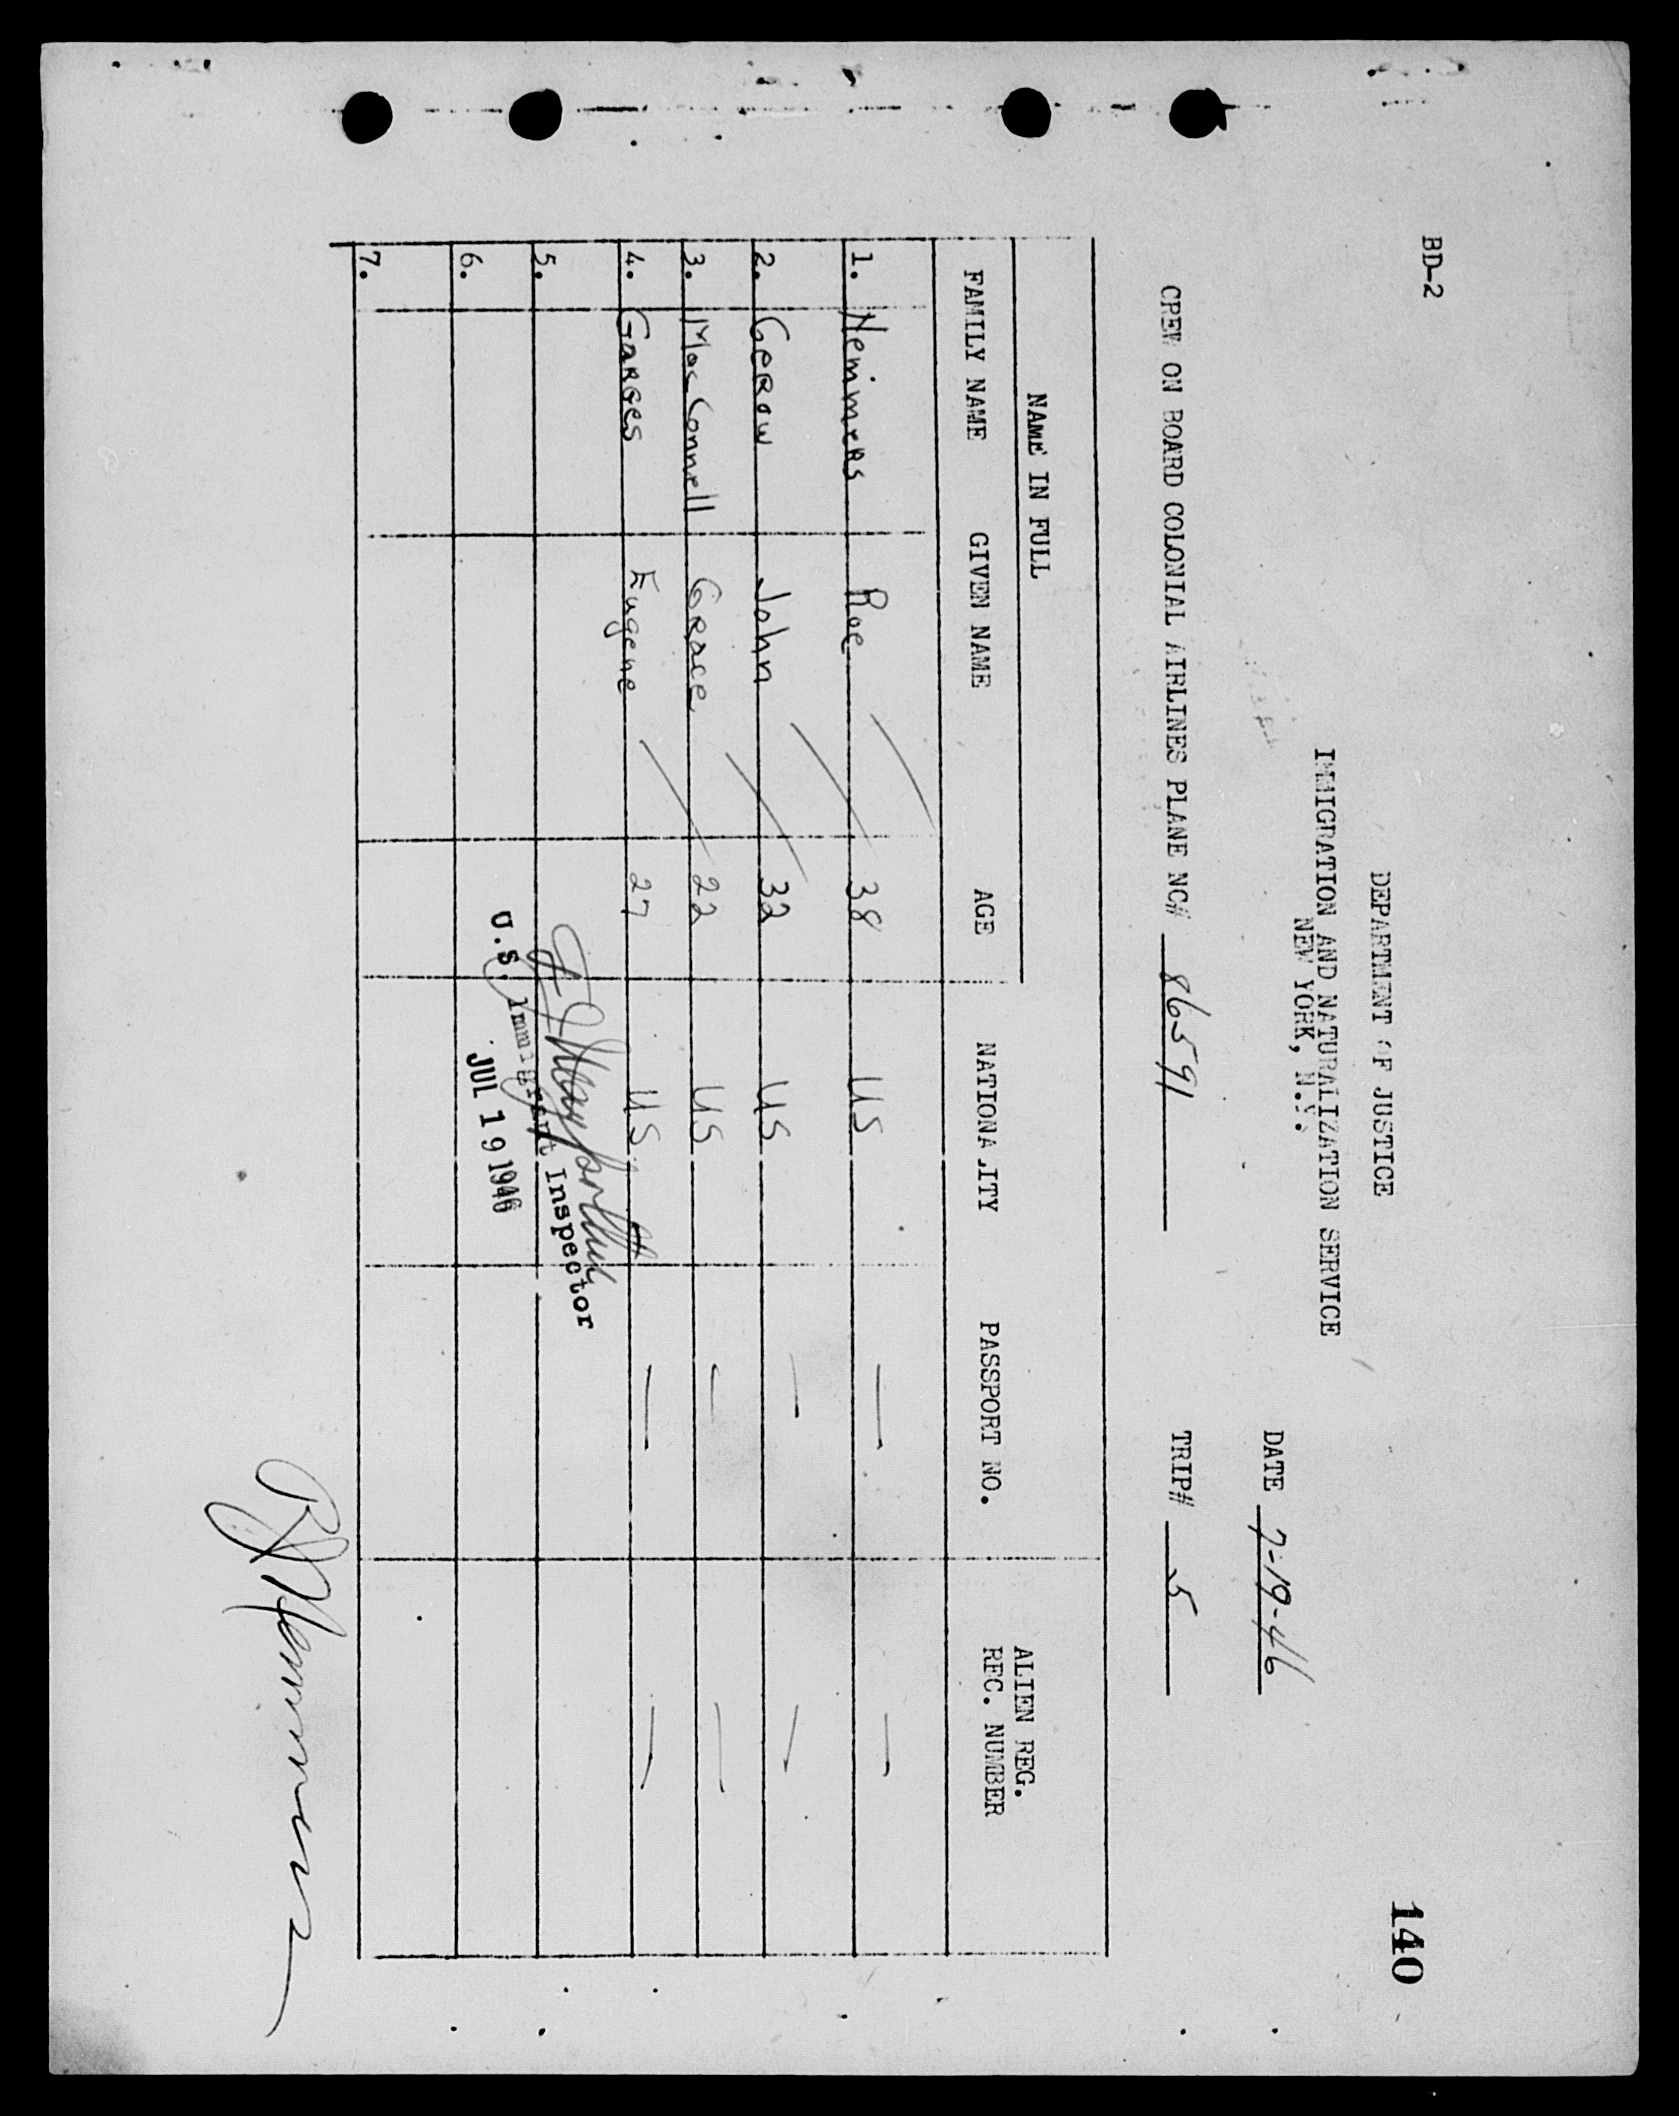 BD-2
140
DEPARTMENT OF JUSTICE
IMMIGRATION AND NATURALIZATION SERVICE
NEW YORK, N.Y.
DATE 7-19-46
CREW ON BOARD COLONIAL AIRLINES PLANE NC# 86591 TRIP# 5
NAME IN FULL
ALIEN REG.
FAMILY NAME GIVEN NAME AGE NATIONALITY PASSPORT NO. REC. NUMBER
1. Nemimers Roe 38 US — —
2. Gerow John 32 US — —
3. MacConnell Grace 22 US — —
4. Garges Eugene 27 US — —
5.
U.S. Immigrant Inspector
6.
JUL 19 1946
7.